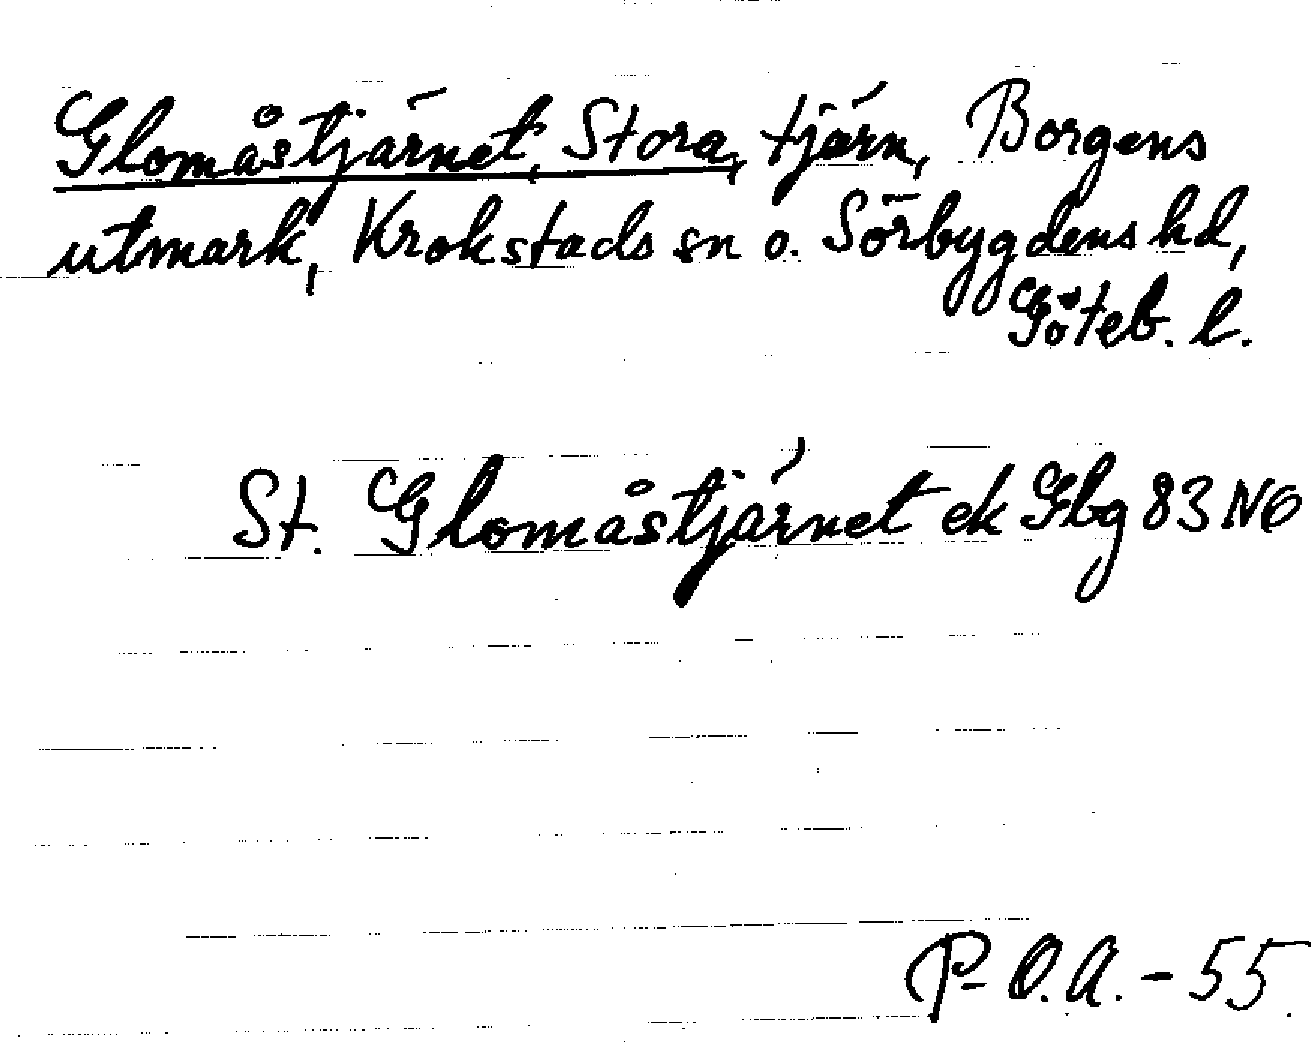 Glomåstjärnet, Stora, tjärn, Borgens
utmark, Krokstads sn o. Sörbygdens hd,
Göteb. l.
St. Glomåstjärnet ek Gbg 83 NO
P-O.A. - 55.